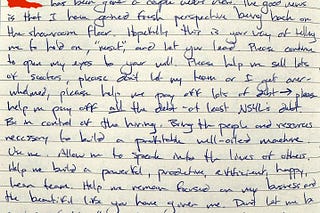 has been gone a couple weeks now. The good news
is that I have gained fresh perspective being back on
the showroom floor. Hopefully, this is your way of telling
me to hold on, "reset," and let you lead. Please continue
to open my eyes to your will. Please help me sell lots
of scooters, please don't let my team or I get over-
whelmed, please help me pay off lots of debt → please
help me pay off all the debt - at least debt.
Be in control of the hiring. Bring the people and resources
necessary to build a profitable well-oiled machine.
Use me. Allow me to speak into the lives of others.
Help me build a powerful, productive, efficient, happy,
lean team. Help me remain focused on my business and
the beautiful life you have given me. Don't let me b